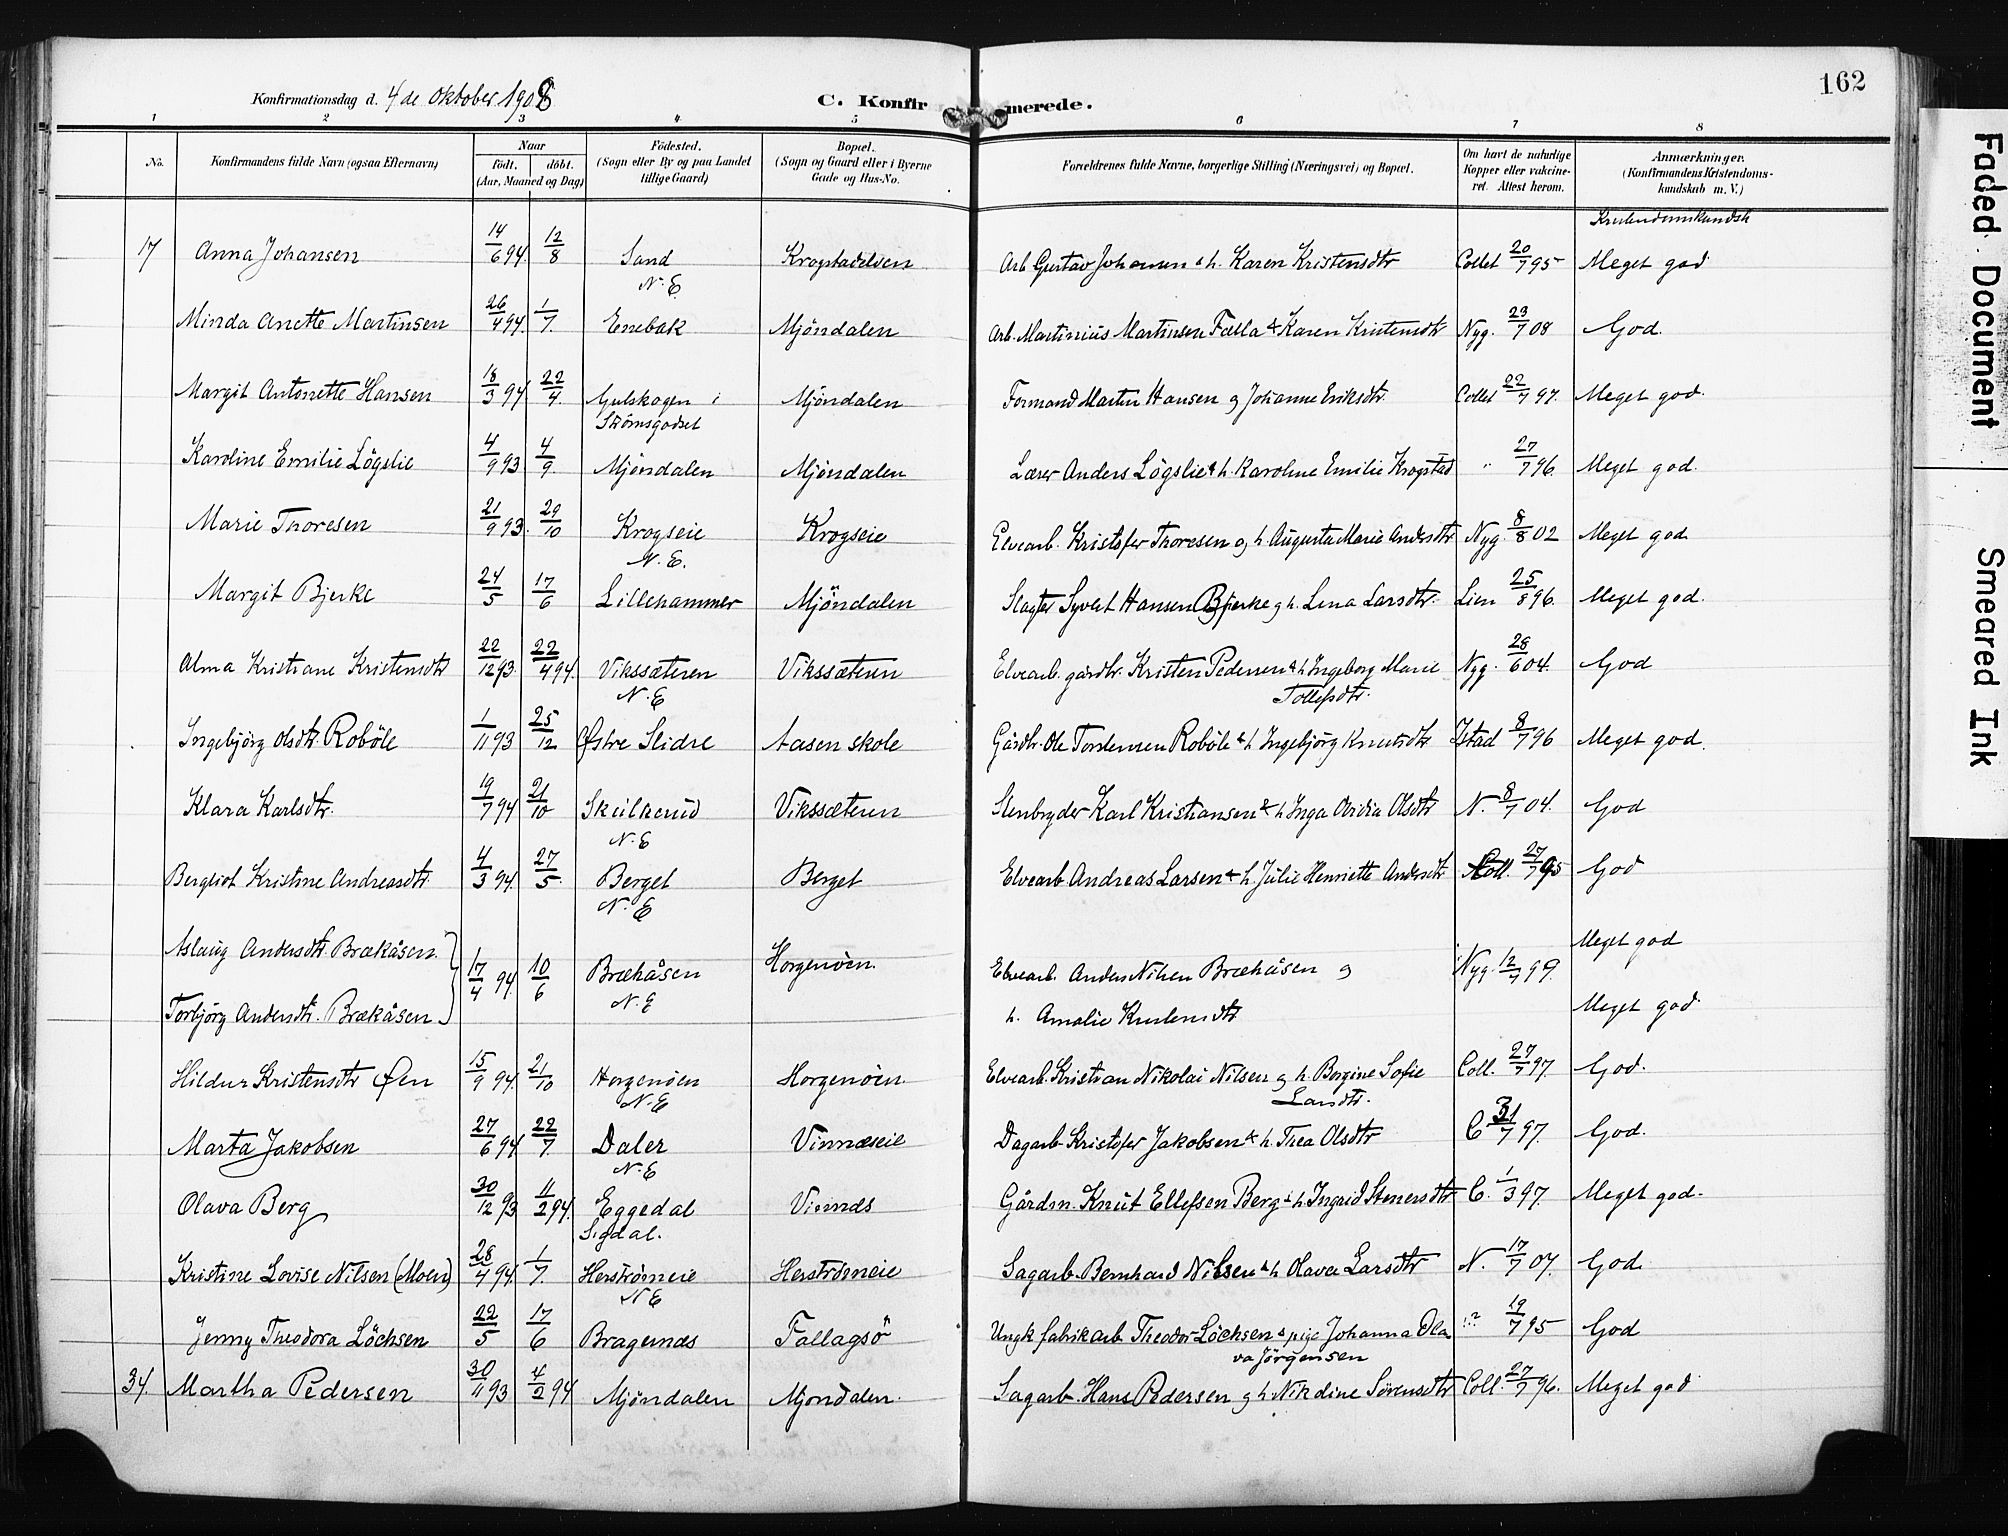 162
Konfirmationsdag d. 4 de Oktober 1908
C. Konfirmerede.
1 2 3 4 5 6 7 8
No. Konfirmandens fulde Navn (ogsaa Efternavn) Naar født. døbt. (Aar, Maaned og Dag) Fødested. (Sogn eller By og paa Landet tillige Gaard) Bopæl. (Sogn og Gaard eller i Byerne Gade og Hus-No. Forældrenes fulde Navne, borgerlige Stilling (Næringsvei) og Bopæl. Om havt de naturlige Kopper eller vakcineret. Attest herom. Anmærkninger. (Konfirmandens Kristendomskundskab m. V.)
Kristendomskundsk
17 Anna Johansen 14/6 94. 12/8 Sand N. E. Krogstadelven Arb. Gustav Johansen & h. Karen Kristensdtr Collet 20/7 95 Meget god
Minda Anette Martinsen 26/4 94. 1/7. Enebak Mjöndalen Arb. Martinius Martinsen Falla & Karen Kristensdtr Nyg. 23/7 08 God.
Margit Antonette Hansen 18/3 94 22/4. Gulskogen i Strømsgodset Mjöndalen Formand Martin Hansen og Johanne Eriksdtr. Collet 22/7 97. Meget god.
Karoline Emilie Lögslie 4/9 93 4/9 Mjöndalen Mjöndalen Lærer Anders Lögslie & h. Karoline Emilie Krogstad " 27/7 96 Meget god.
Marie Thoresen 21/9 93. 29/10 Krogseie N. E. Krogseie Elvearb. Kristofer Thoresen og h. Augusta Marie Andersdtr Nyg. 8/8 02 Meget god
Margit Bjerke 24/5 17/6 Lillehammer Mjöndalen Slagter Syvert Hansen Bjerke og h. Lena Larsdtr. Lien 25/8 96. Meget god.
Alma Kristiane Kristensdtr 22/12 93. 22/4 94. Vikssæteren N. E Vikssæteren Elvearb. gårdbr. Kristen Pedersen & h Ingeborg Marie Tollefsdtr. Nyg. 28/6 04. God
Ingebjörg Olsdtr. Robøle 1/11 93 25/12 Østre Slidre Aasen skole Gårdbr. Ole Tostensen Robøle & h Ingebjörg Knutsdtr Istad 8/7 96 Meget god.
Klara Karlsdtr. 19/7 94 21/10 Skeilkerud N. E Vikssæteren Stenbryder Karl Kristiansen & h Inga Ovidia Olsdtr N. 8/7 04. God
Bergliot Kristine Andreasdtr. 4/3 94. 27/5. Berget N. E Berget Elvearb. Andreas Larsen & h. Julie Henriette Andersdtr Coll. 27/7 95 God
Aslaug Andersdtr. Brækåsen } 17/4 94. 10/6 Brækåsen N. E Horgenöen. Elvearb. Anders Nilsen Brækåsen og Nyg. 12/7 99. Meget god
Torbjörg Andersdtr. Brækåsen } h. Amalie Kristensdtr Meget god
Hildur Kristensdtr Øen 15/9 94. 21/10 Horgenöen N. E Horgenöen Elvearb. Kristian Nikolai Nilsen og h. Bergine Sofie Larsdtr. Coll. 27/7 97. God.
Marta Jakobsen 27/6 94 22/7. Daler N. E Vinnæseie Dagarb. Kristofer Jakobsen & h. Thea Olsdtr C 31/7 97. God.
Olava Berg 30/12 93 11/2 94. Eggedal Sigdal. Vinnæs Gårdm. Knut Ellefsen Berg & h Ingrid Stenersdtr C. 1/3 97. Meget god.
Kristine Lovise Nilsen (Moen) 28/4 94. 1/7. Herströmeie N E Herströmeie Sagarb. Bernhard Nilsen & h Olava Larsdtr N. 17/7 07. God
Jenny Theodora Löchsen 22/5 17/6 Bragernæs Fallagsö Ungk. fabrikarb. Theodor Löchsen & pige Johanna Olava Jörgensen 19/7 95 God
34. Martha Pedersen 30/11 93 4/2 94 Mjöndalen Mjöndalen. Sagarb. Hans Pedersen og h Nikoline Sörensdtr Coll. 27/7 96. Meget god
Faded Document
Smeared Ink